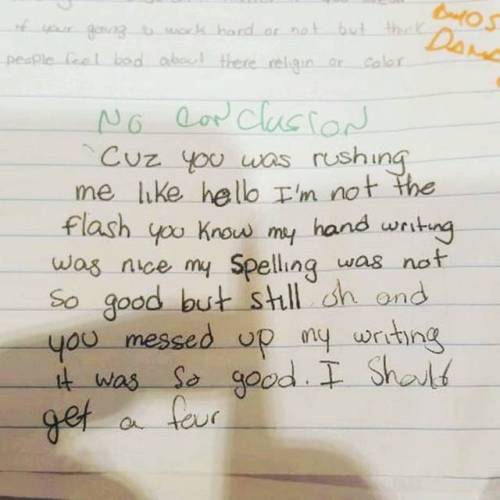 if your going to work hard or not but think
people feel bad about there religin or color
No conclusion
Cuz you was rushing
me like hello I'm not the
flash you know my hand writing
was nice my spelling was not
so good but still oh and
you messed up my writing
it was so good. I should
get a four